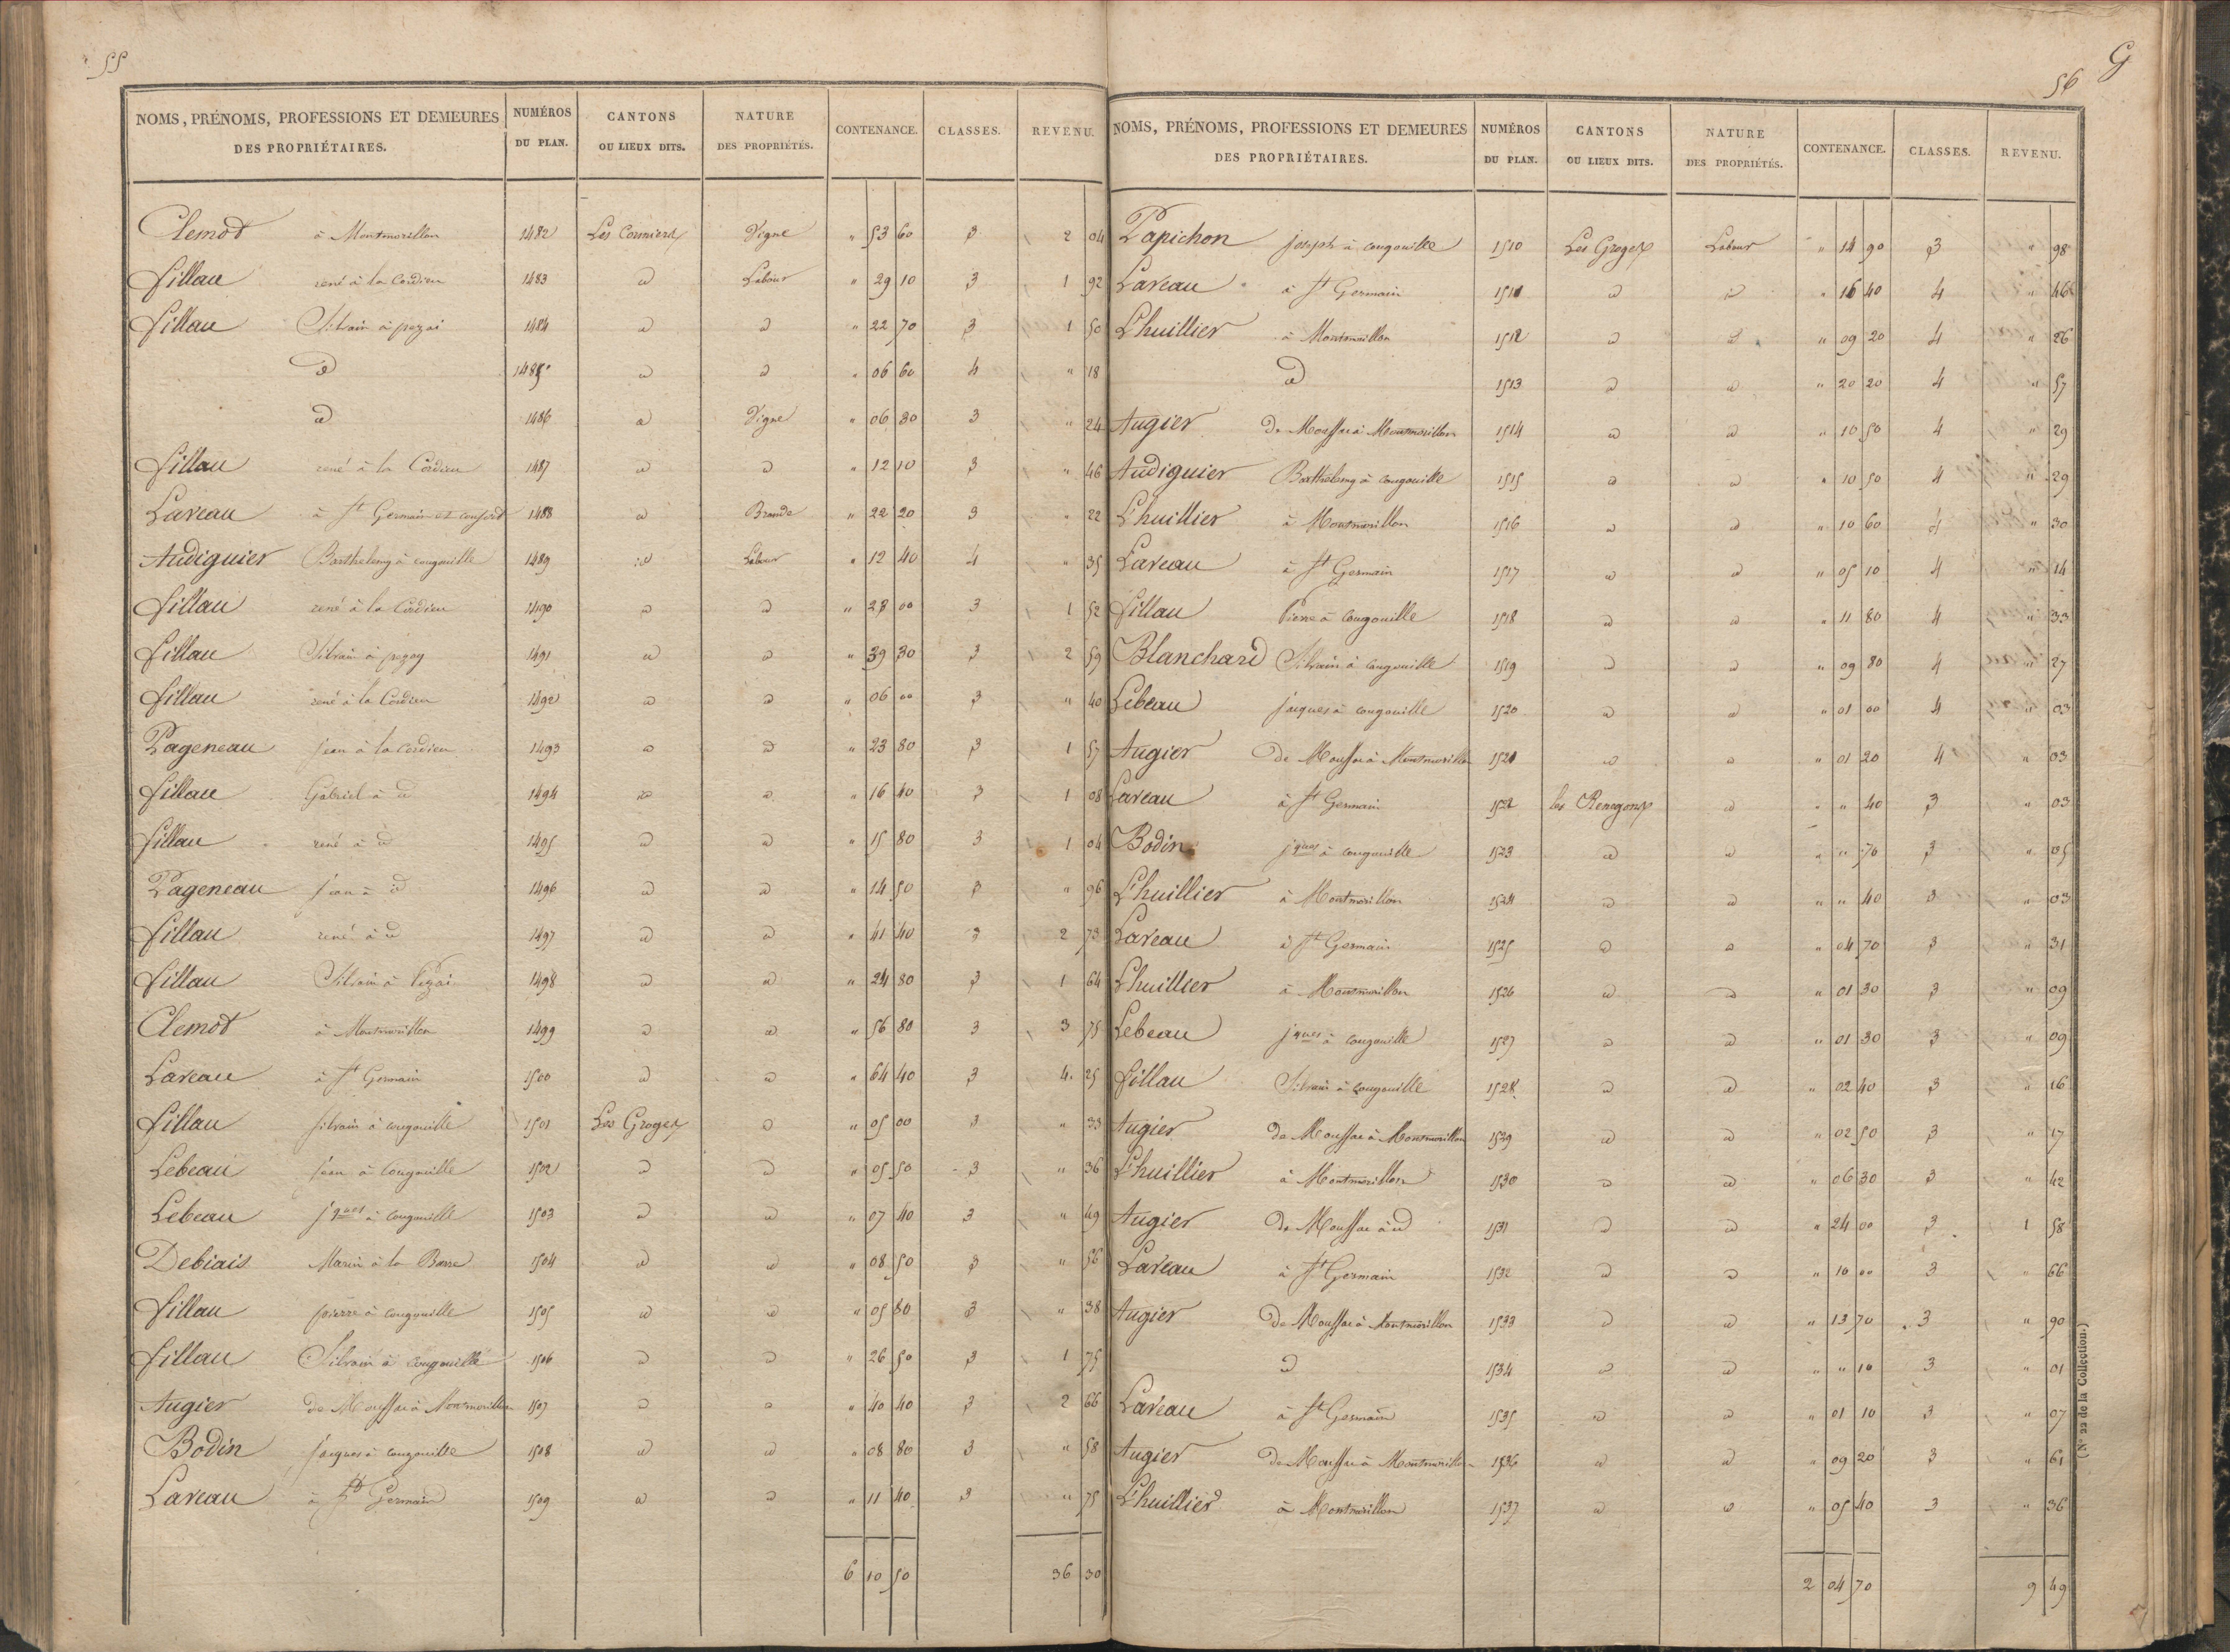 55
NOMS, PRÉNOMS, PROFESSIONS ET DEMEURES DES PROPRIÉTAIRES. NUMÉROS DU PLAN. CANTONS OU LIEUX DITS. NATURE DES PROPRIÉTÉS. CONTENANCE. CLASSES. REVENU.
Clemot à Montmorillon 1482 Les Cormiers Vigne " 53 60 3 2 04
fillau rené à la Cordieu 1483 d Labour " 29 10 3 1 92
fillau Silvain à pezai 1484 d d " 22 70 3 1 50
d 1485 d d " 06 60 4 " 18
d 1486 d Vigne " 06 30 3 " 24
fillau rené à la Cordieu 1487 d d " 12 10 3 " 46
Laveau à St Germain et consort 1488 d Brande " 22 20 3 " 22
Audiguier Barthelemy à cougouille 1489 d Labour " 12 40 4 " 35
fillau rené à la Cordieu 1490 d d " 23 00 3 1 52
fillau Silvain à pezay 1491 d d " 39 30 3 2 59
fillau rené à la Cordieu 1492 d d " 06 00 3 " 40
Pageneau jean à la Cordieu 1493 d d " 23 80 3 1 57
fillau Gabriel à d 1494 d d " 16 40 3 1 08
fillau rené à d 1495 d d " 15 80 3 1 04
Pageneau jean à d 1496 d d " 14 50 3 " 96
fillau rené à d 1497 d d " 41 40 3 2 73
fillau Silvain à Pezai 1498 d d " 24 80 3 1 64
Clemot à Montmorillon 1499 d d " 56 80 3 3 75
Laveau à St Germain 1500 d d " 64 40 3 4 25
fillau silvain à cougouille 1501 Les Groges d " 05 00 3 " 33
Lebeau jean à Cougouille 1502 d d " 05 50 3 " 36
Lebeau jques à Cougouille 1503 d d " 07 40 3 " 49
Debiais Marin à la Barre 1504 d d " 08 50 3 " 56
fillau pierre à cougouille 1505 d d " 05 80 3 " 38
fillau Silvain à cougouille 1506 d d " 26 50 3 1 75
Augier de Moussac à Montmorillon 1507 d d " 40 40 3 2 66
Bodin jacques à cougouille 1508 d d " 08 80 3 " 58
Laveau à St Germain 1509 d d " 11 40 3 " 75
6 10 50 36 30
56
G
NOMS, PRÉNOMS, PROFESSIONS ET DEMEURES DES PROPRIÉTAIRES. NUMÉROS DU PLAN. CANTONS OU LIEUX DITS. NATURE DES PROPRIÉTÉS. CONTENANCE. CLASSES. REVENU.
Papichon joseph à cougouille 1510 Les Groges Labour " 14 90 3 " 98
Laveau à St Germain 1511 d d " 16 40 4 " 46
Lhuillier à Montmorillon 1512 d d " 09 20 4 " 26
d 1513 d d " 20 20 4 " 57
Augier de Moussac à Montmorillon 1514 d d " 10 50 4 " 29
Audiguier Barthelemy à cougouille 1515 d d " 10 50 4 " 29
Lhuillier à Montmorillon 1516 d d " 10 60 4 " 30
Laveau à St Germain 1517 d d " 05 10 4 " 14
fillau Pierre à Cougouille 1518 d d " 11 80 4 " 33
Blanchard Silvain à cougouille 1519 d d " 09 80 4 " 27
Lebeau jacques à cougouille 1520 d d " 01 00 4 " 03
Augier de Moussac à Montmorillon 1521 d d " 01 20 4 " 03
Laveau à St Germain 1522 les d " " 40 3 " 03
Bodin jques à cougouille 1523 d d " " 70 3 " 05
Lhuillier à Montmorillon 1524 d d " " 40 3 " 03
Laveau à St Germain 1525 d d " 04 70 3 " 31
Lhuillier à Montmorillon 1526 d d " 01 30 3 " 09
Lebeau jques à cougouille 1527 d d " 01 30 3 " 09
fillau Silvain à cougouille 1528 d d " 02 40 3 " 16
Augier de Moussac à Montmorillon 1529 d d " 02 50 3 " 17
Lhuillier à Montmorillon 1530 d d " 06 30 3 " 42
Augier de Moussac à d 1531 d d " 24 00 3 1 58
Laveau à St Germain 1532 d d " 10 00 3 " 66
Augier de Moussac à Montmorillon 1533 d d " 13 70 3 " 90
d 1534 d d " " 10 3 " 01
Laveau à St Germain 1535 d d " 01 10 3 " 07
Augier de Moussac à Montmorillon 1536 d d " 09 20 3 " 61
Lhuillier à Montmorillon 1537 d d " 05 40 3 " 36
2 04 70 9 49
(N° 22 de la Collection.)